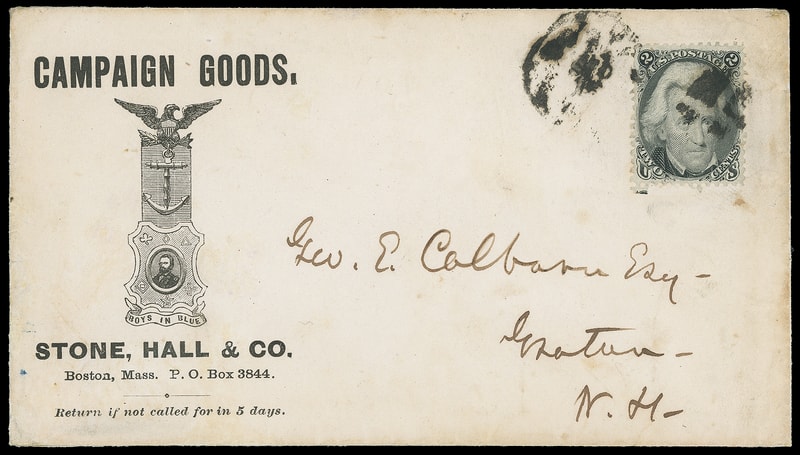 CAMPAIGN GOODS.
BOYS IN BLUE
STONE, HALL & CO.
Boston, Mass. P. O. Box 3844.
Return if not called for in 5 days.
2 U.S. POSTAGE 2
U TWO CENTS S
Geo. E. Colborn Esq -
Groton -
N. H -